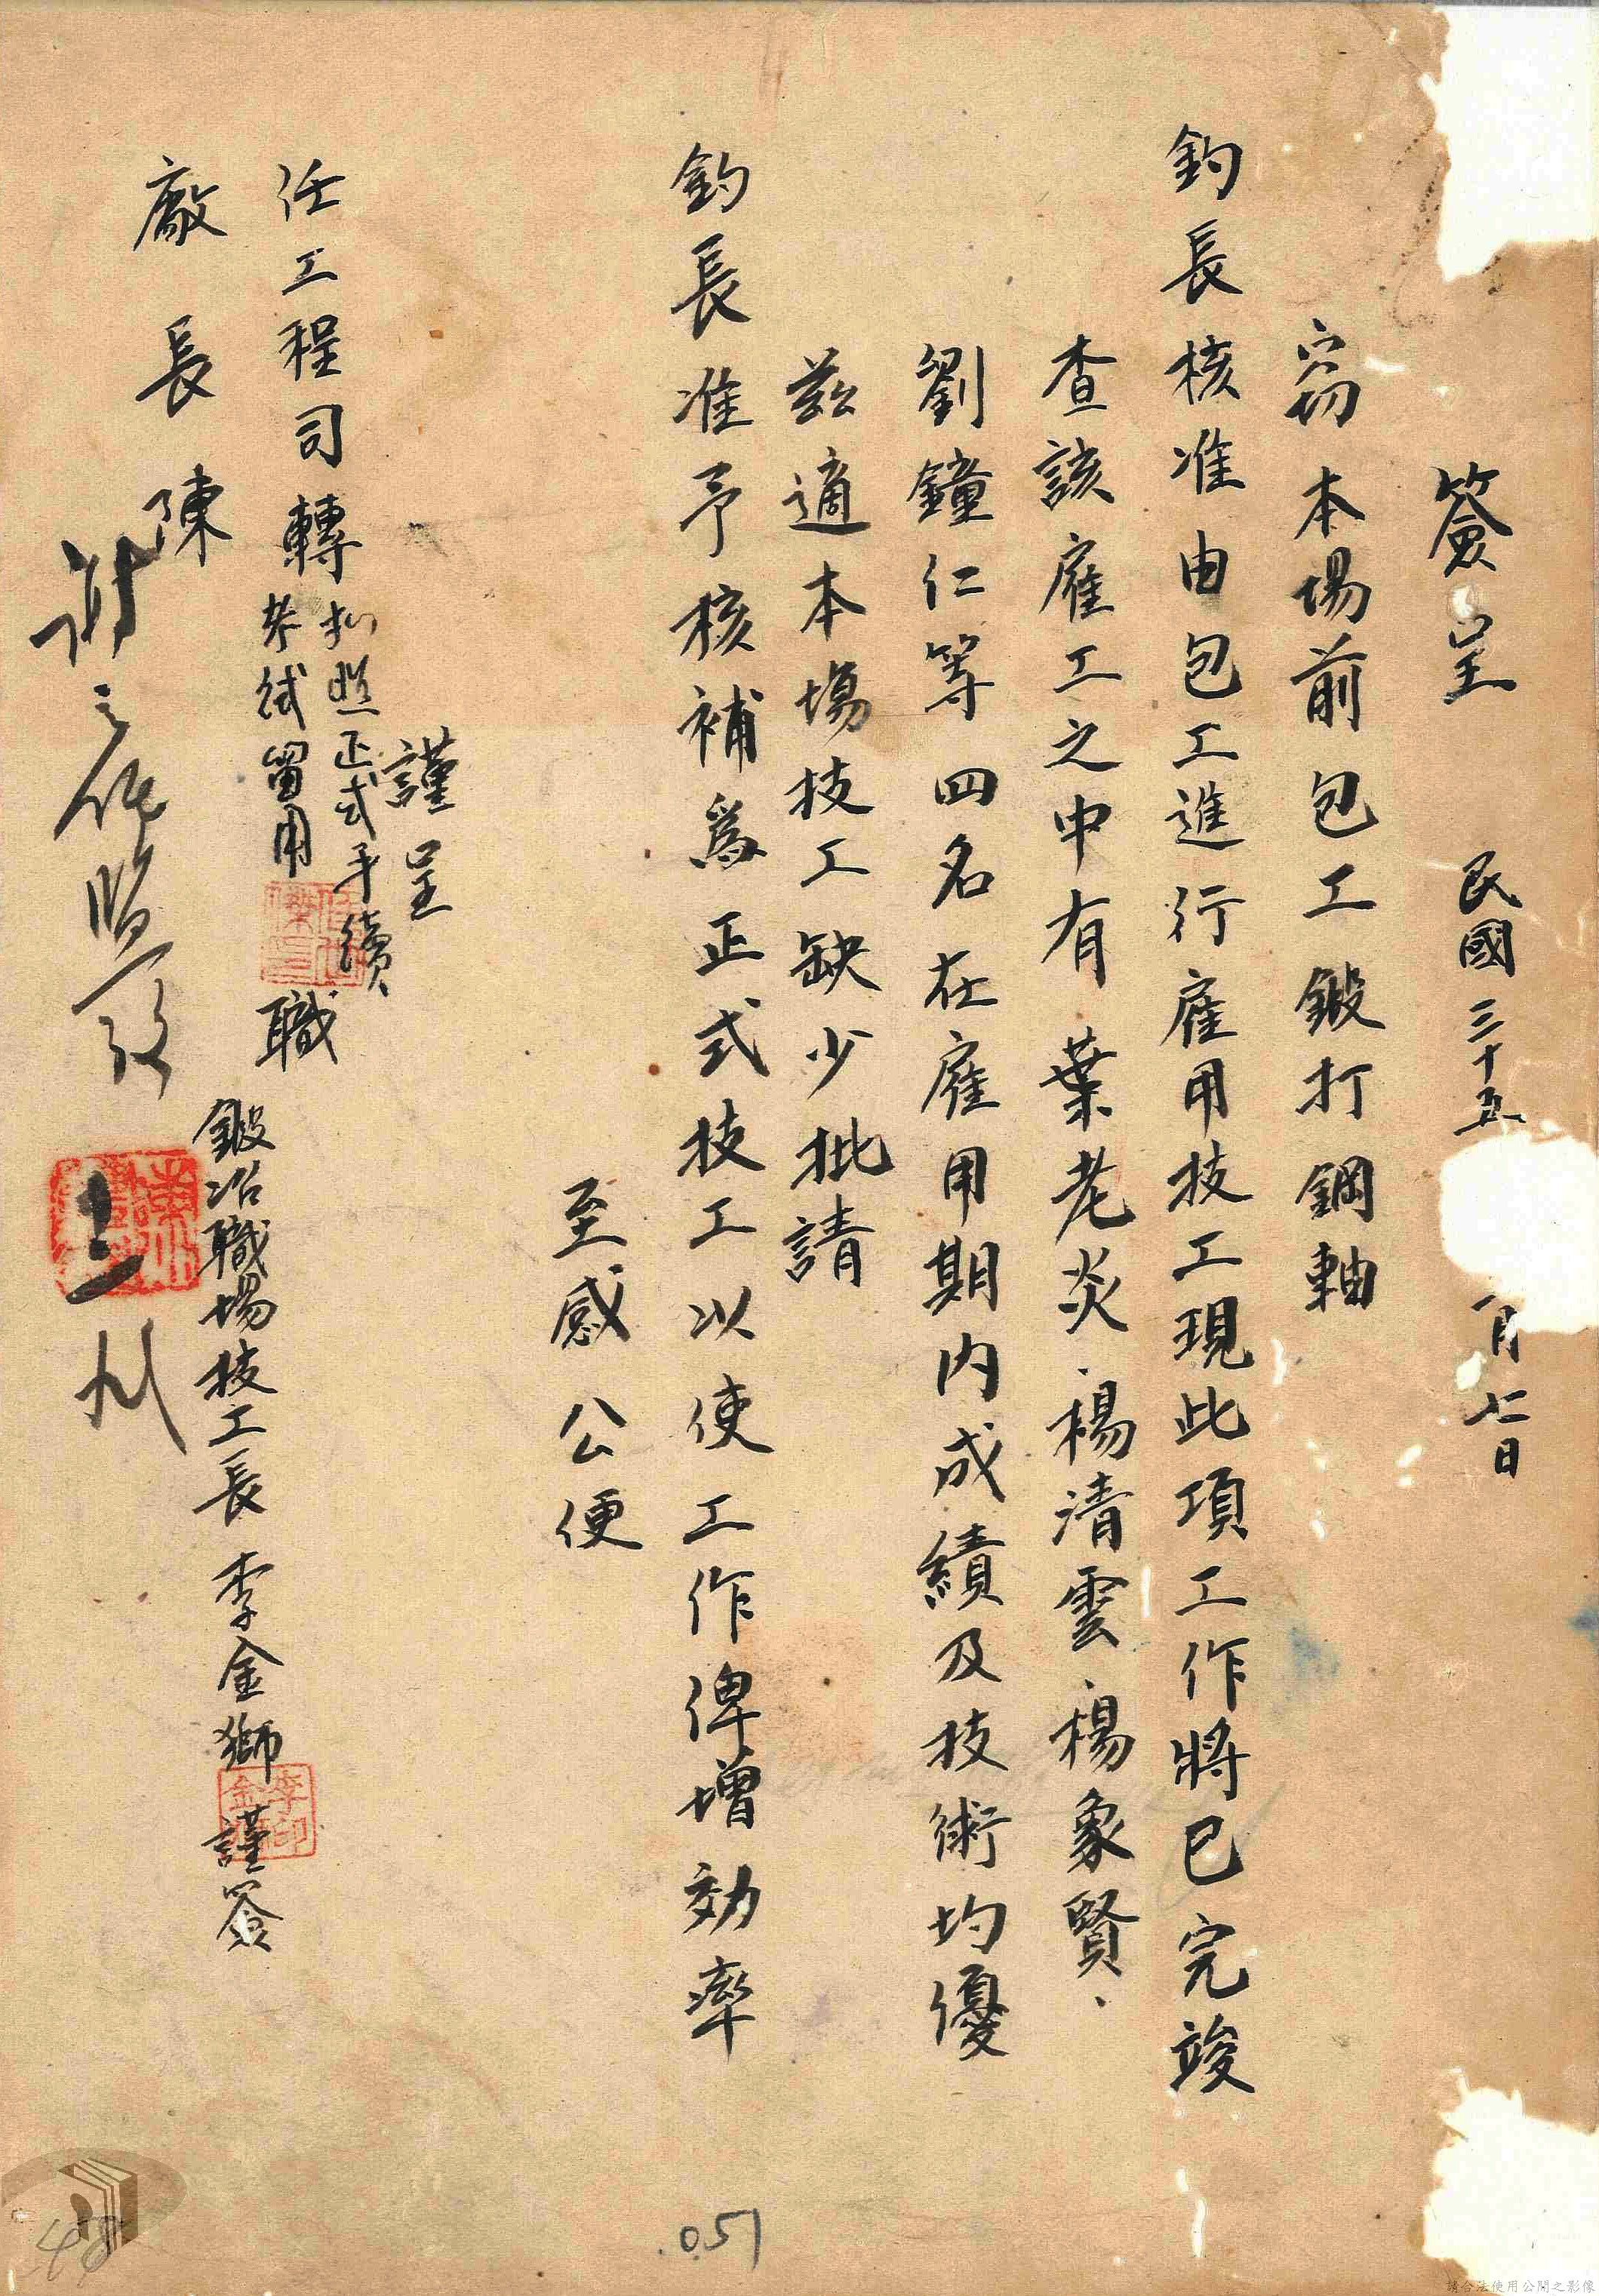 簽呈 民國三十五 月七日
窃本場前包工鍛打鋼軸
鈞長核准由包工進行雇用技工現此項工作將已完竣
查該雇工之中有葉老炎、楊清雲、楊象賢、
劉鐘仁等四名在雇用期內成績及技術均優
茲適本場技工缺少批請
鈞長准予核補為正式技工以使工作俾增効率
至感公便
謹呈
任工程司轉
擬照正式手續
考試留用
廠長陳
職
鍛冶職場技工長 李金獅 謹簽
李印金
照
051
48
請合法使用公開之影像